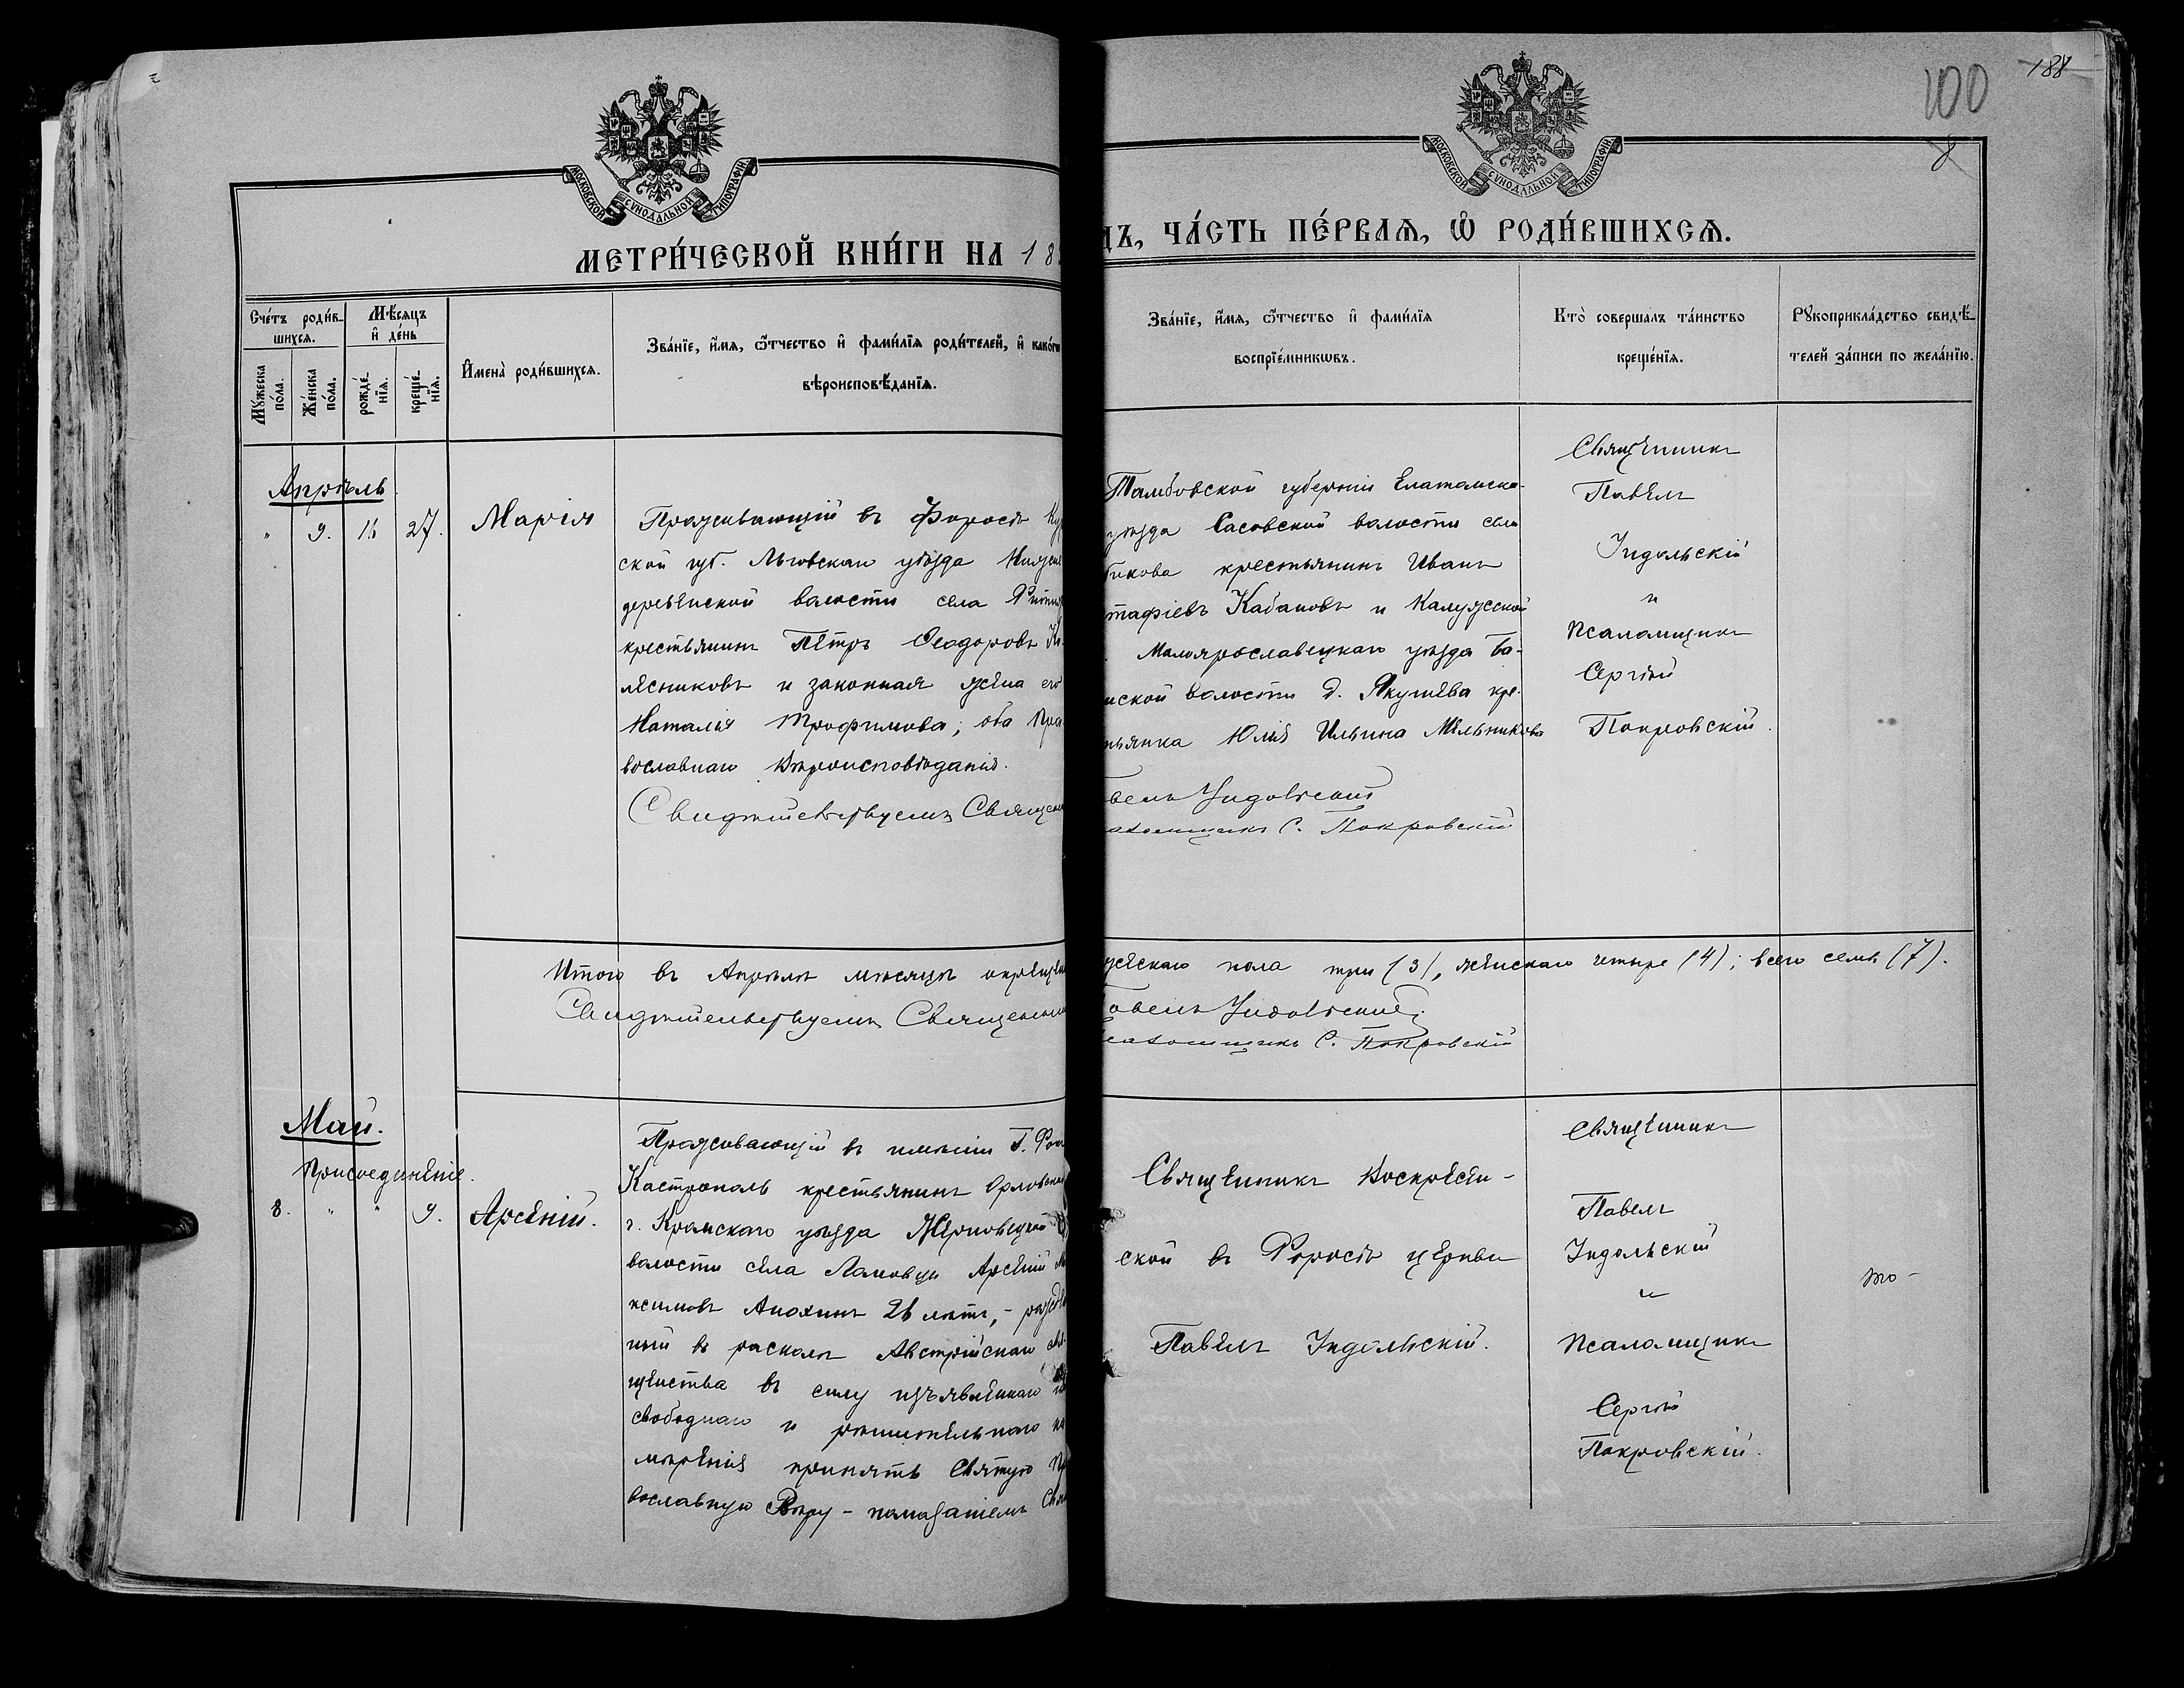 100
188
8
МОСКОВСКОЙ СѴНОДАЛЬНОЙ ТИПОГРАФІИ
МОСКОВСКОЙ СѴНОДАЛЬНОЙ ТИПОГРАФІИ
МЕТРИ́ЧЕСКОЙ КНИ́ГИ НА 18
ДЪ, ЧА́СТЬ ПЕ́РВАЯ, Ѡ РОДИ́ВШИХСЯ.
Сче́тъ роди́в-
шихся.
Мꙋ́жеска по́ла.
Же́нска по́ла.
Мѣ́сяцъ
и҆ де́нь
рожде́-
нїя.
креще́-
нїя.
И҆мена̀ роди́вшихся.
Зва́нїе, и҆́мя, ѻ҆́тчество и҆ фами́лїя роди́телей, и҆ како́гѡ
вѣроисповѣ́данїя.
Зва́нїе, и҆́мя, ѻ҆́тчество и҆ фами́лїя
воспрїе́мникѡвъ.
Кто̀ соверша́лъ та́инство
креще́нїя.
Рꙋкоприкла́дство свидѣ́-
телей за́писи по жела́нїю.
Апрѣль
" 9. 27. Марія
Проживающій въ Форосѣ
ской губ. Льговскаго уѣзда
деревенской волости села
крестьянинъ Петръ Ѳеодоровъ
лесниковъ и законная жена его
Наталія Трофимова; оба Пра
вославнаго вѣроисповѣданія.
Свидѣтельствуемъ Священ
Тамбовской губерніи Елатомска-
уѣзда Сасовской волости села
бикова крестьянинъ Иванъ
тафіевъ Кабановъ и Калужской
Малоярославецкаго уѣзда Ба-
ской волости д. Якушева кре-
тьянка Юлія Ильина Мельникова
велъ Индольскій
аломщикъ С. Покровскій
Священникъ
Павелъ
Индольскій
и
Псаломщикъ
Сергій
Покровскій.
Итого въ Апрѣлѣ мѣсяцѣ окрещен
жескаго пола три (3), женскаго четыре (4); всего семь (7).
Свидѣтельствуемъ Священник
авелъ Индольскій
саломщикъ С. Покровскій
Май.
Присоединеніе.
8. " " 9. Арсеній.
Проживающій въ имѣніи Г.
Кастрополь крестьянинъ Орловской
г. Кромскаго уѣзда
волости села Ломовца Арсеній
ксимовъ Анохинъ 26 лѣтъ, - рожд
ный въ расколѣ Австрійскаго
щенства въ силу изъявленнаго
свободнаго и рѣшительнаго на
мѣренія принять Святую Пр
вославную Вѣру - помазаніемъ
Священникъ Воскресен-
ской въ Форосѣ церкви
Павелъ Индольскій.
Священникъ
Павелъ
Индольскій
и
Псаломщикъ
Сергій
Покровскій.